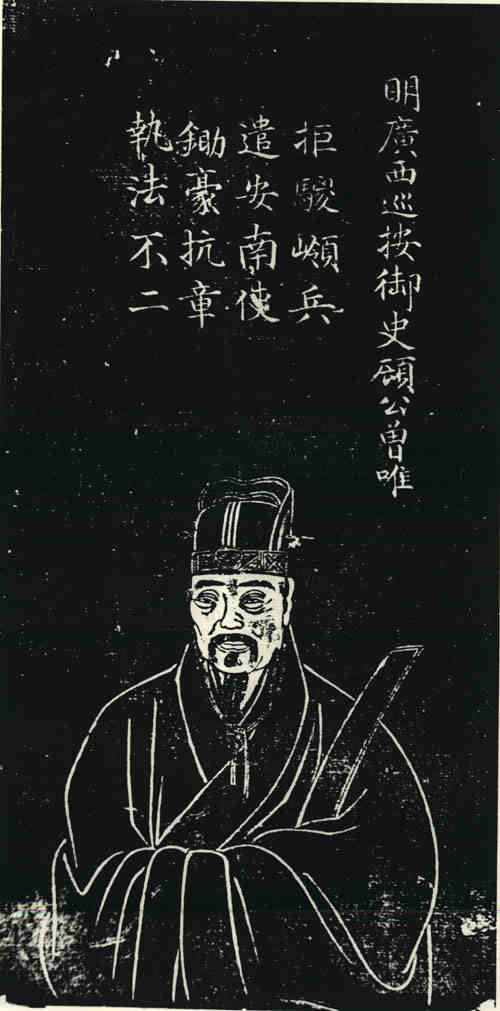 明廣西巡按御史顧公曾唯
拒駿兵
遣安南使
鋤豪抗章
執法不二